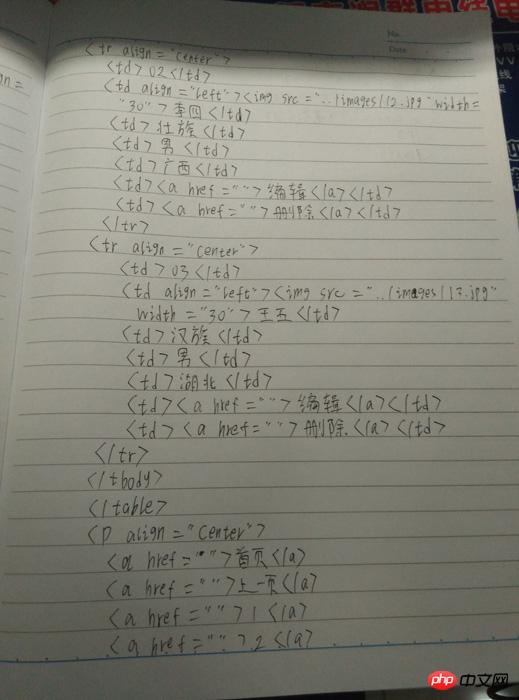 No.
Date
<tr align="center">
<td>02</td>
<td align="left"><img src="../images/12.jpg" width=
"30">李四</td>
<td>壮族</td>
<td>男</td>
<td>广西</td>
<td><a href="">编辑</a></td>
<td><a href="">删除</a></td>
</tr>
<tr align="center">
<td>03</td>
<td align="left"><img src="../images/13.jpg"
width="30">王五</td>
<td>汉族</td>
<td>男</td>
<td>湖北</td>
<td><a href="">编辑</a></td>
<td><a href="">删除</a></td>
</tr>
</tbody>
</table>
<p align="center">
<a href="">首页</a>
<a href="">上一页</a>
<a href="">1</a>
<a href="">2</a>
php 中文网